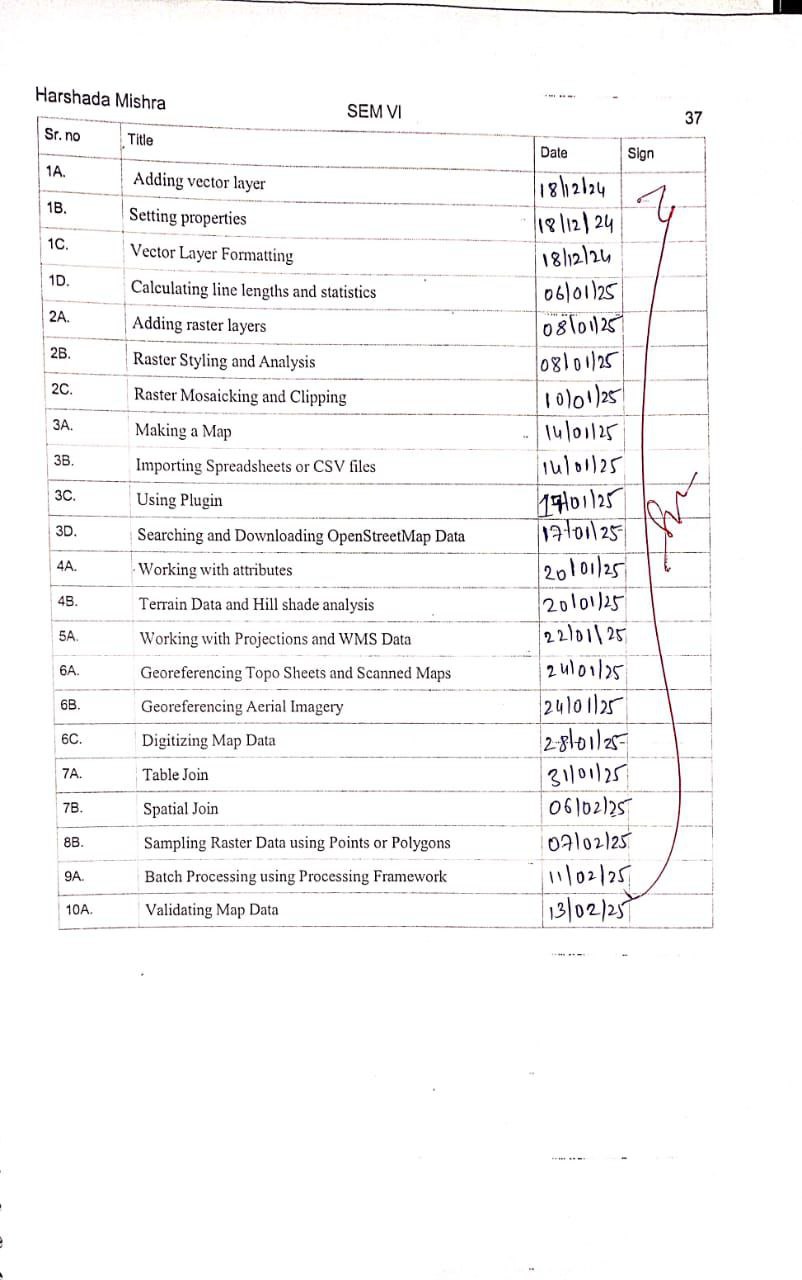 Harshada Mishra SEM VI 37
Sr. no Title Date Sign
1A. Adding vector layer 18/12/24
1B. Setting properties 18/12/24
1C. Vector Layer Formatting 18/12/24
1D. Calculating line lengths and statistics 06/01/25
2A. Adding raster layers 08/01/25
2B. Raster Styling and Analysis 08/01/25
2C. Raster Mosaicking and Clipping 10/01/25
3A. Making a Map 14/01/25
3B. Importing Spreadsheets or CSV files 14/01/25
3C. Using Plugin 17/01/25
3D. Searching and Downloading OpenStreetMap Data 17/01/25
4A. Working with attributes 20/01/25
4B. Terrain Data and Hill shade analysis 20/01/25
5A. Working with Projections and WMS Data 22/01/25
6A. Georeferencing Topo Sheets and Scanned Maps 24/01/25
6B. Georeferencing Aerial Imagery 24/01/25
6C. Digitizing Map Data 28/01/25
7A. Table Join 31/01/25
7B. Spatial Join 06/02/25
8B. Sampling Raster Data using Points or Polygons 07/02/25
9A. Batch Processing using Processing Framework 11/02/25
10A. Validating Map Data 13/02/25